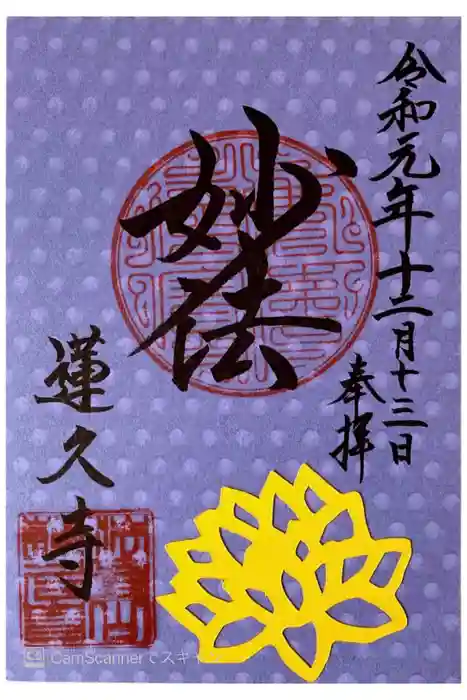 令和元年十二月十三日
奉拝
妙法
蓮久寺
CamScannerでスキ